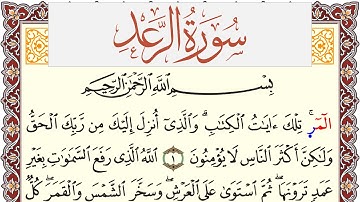 سُورَةُ الرَّعْدِ
بِسْمِ اللَّهِ الرَّحْمَٰنِ الرَّحِيمِ
الٓمٓرۚ تِلْكَ ءَايَٰتُ الْكِتَٰبِۗ وَالَّذِىٓ أُنزِلَ إِلَيْكَ مِن رَّبِّكَ الْحَقُّ
وَلَٰكِنَّ أَكْثَرَ النَّاسِ لَا يُؤْمِنُونَ ١ اللَّهُ الَّذِى رَفَعَ السَّمَٰوَٰتِ بِغَيْرِ
عَمَدٍ تَرَوْنَهَاۖ ثُمَّ اسْتَوَىٰ عَلَى الْعَرْشِۖ وَسَخَّرَ الشَّمْسَ وَالْقَمَرَۖ كُلٌّ